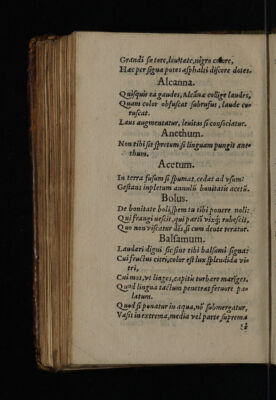 Grandi fœtore, leuitate, nigro colore,
Hæc per signa potes asphalti discere dotes.
Alcanna.
Quisquis ea gaudes, Alcãnæ collige laudes,
Quam color obfuscat subrufus, laude co-
ruscat.
Laus augmentatur, leuitas si consociatur.
Anethum.
Non tibi sit spretum si linguam pungit ane-
thum.
Acetum.
In terra fusum si spumat, cedat ad vsum:
Gestans inpletum annulũ bonitatis acetũ.
Bolus.
De bonitate boli, spem tu tibi ponere noli:
Qui frangi nescit, qui partĩ vixq; rubescit,
Quo non viscatur dẽs, si cum dente teratur.
Balsamum.
Laudari digni sic sint tibi balsami signa:
Cui fructus citri, color est lux splendida vi-
tri,
Cui mos, vt linges, capitis turbare meninges.
Quod lingua tactum penetrat feruore pa-
latum.
Quod si ponatur in aqua, nõ submergatur,
Vasis in extrema, media vel parte suprema